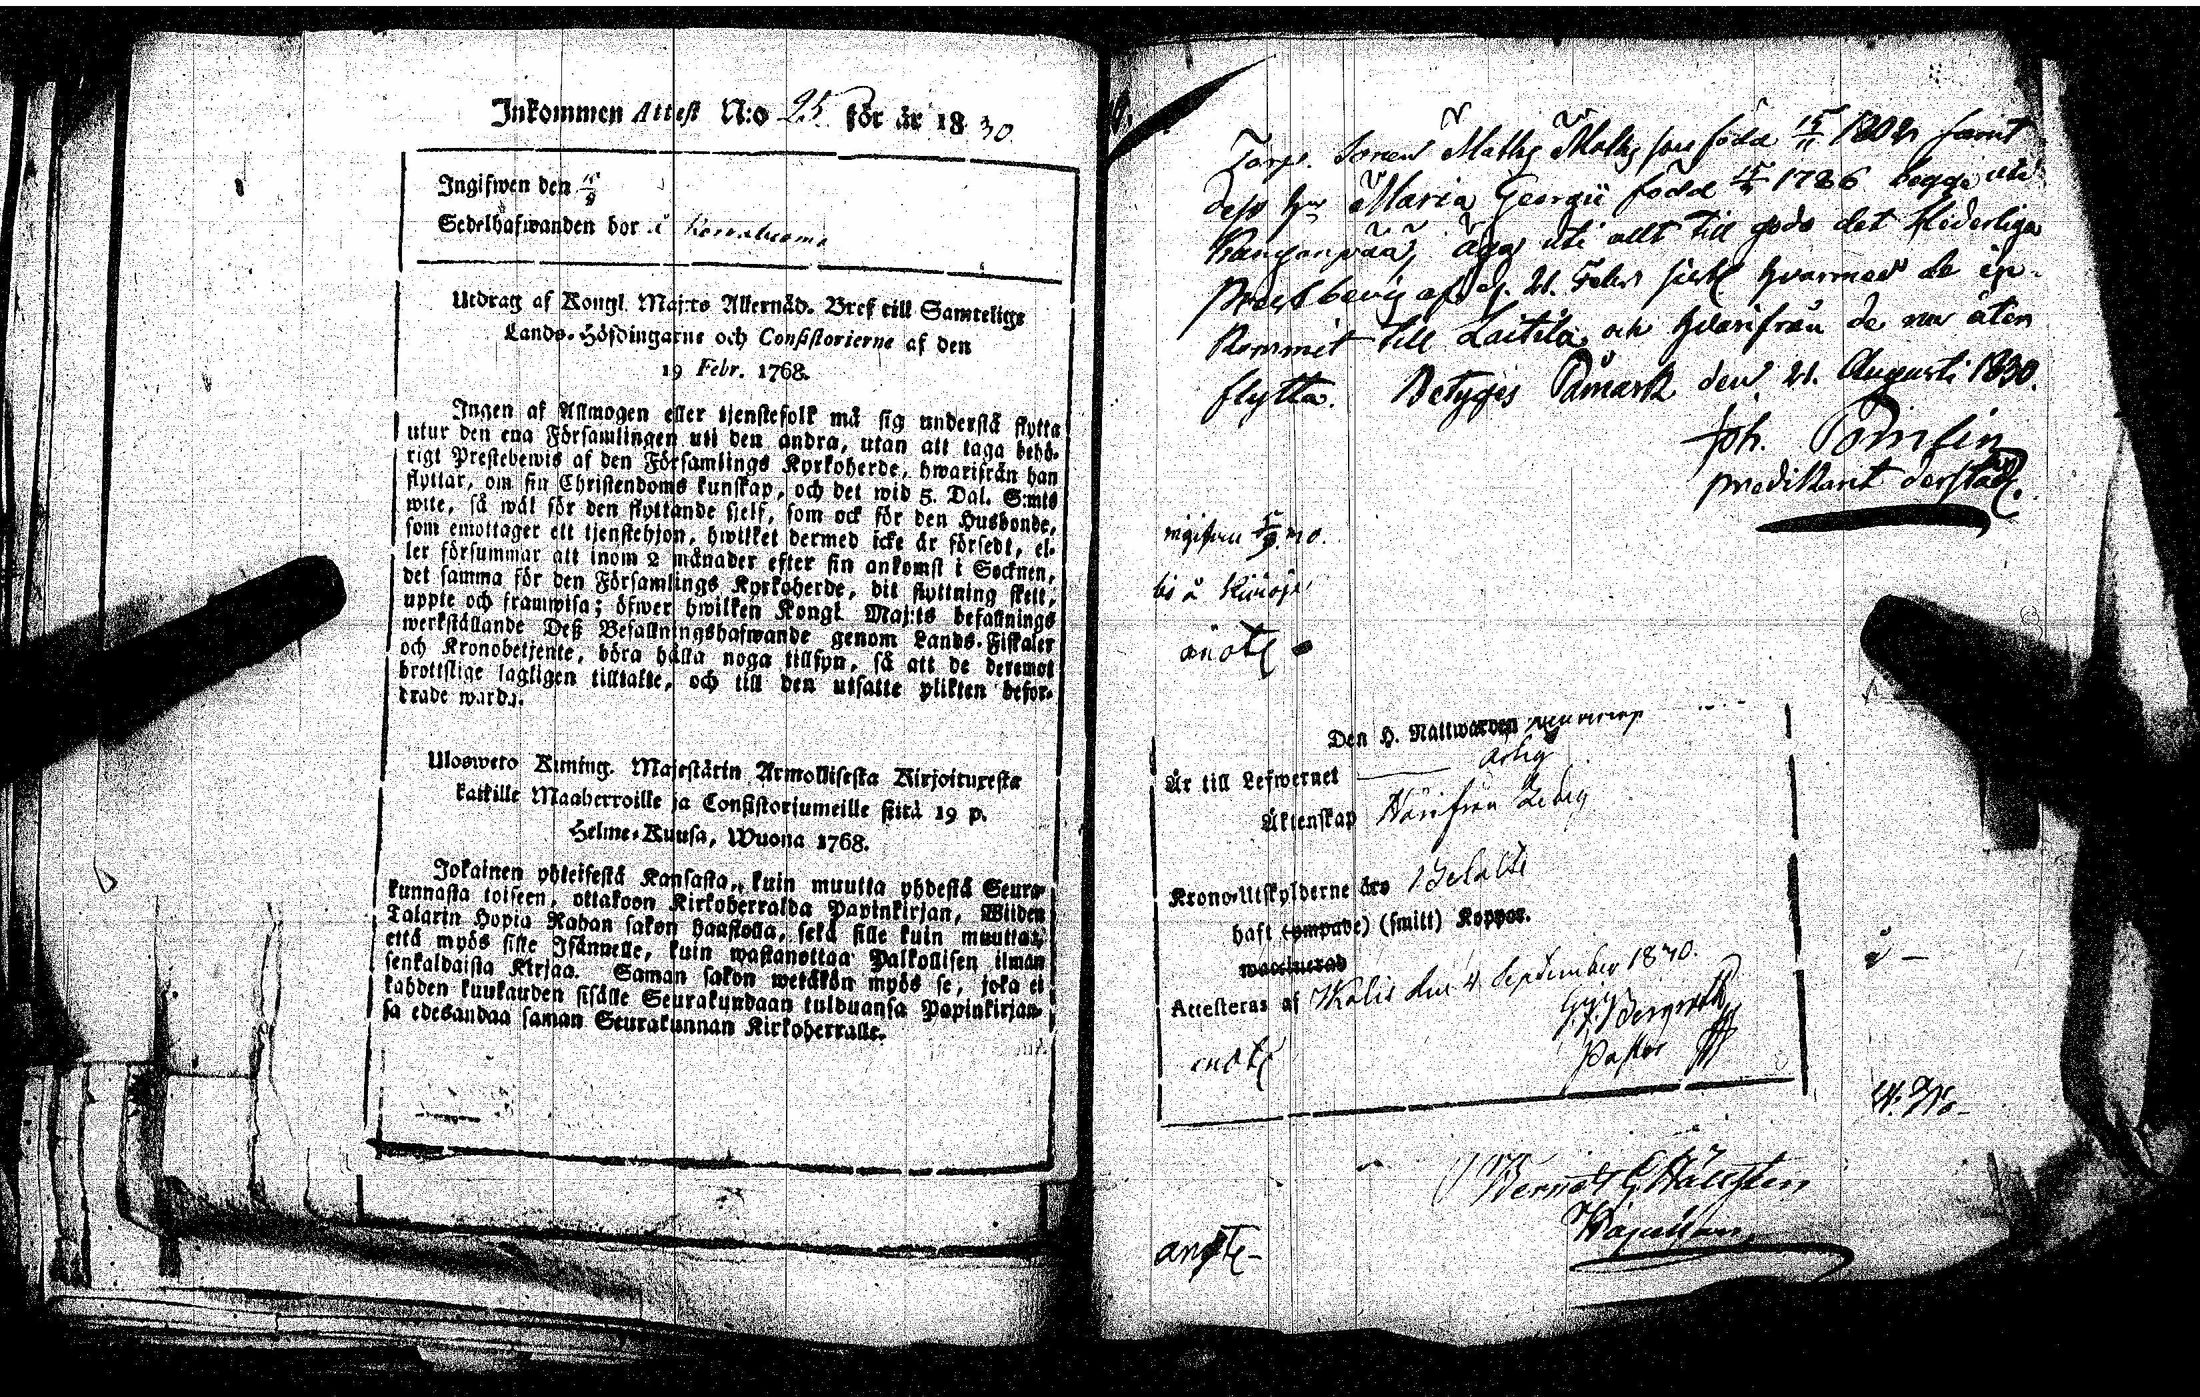 Inkommen Attest N:o 25 för år 1830
Ingifwen den 15/9
Sedelhafwanden bor å
Utdrag af Kongl. Maj:ts Allernåd. Bref till Samtelige
Lands-Höfdingarne och Consistorierne af den
19 Febr. 1768.
Ingen af Allmogen eller tjenstefolk må sig understå flytta
utur den ena Församlingen uti den andra, utan att taga behö-
rigt Prestebewis af den Församlings Kyrkoherde, hwarifrån han
flyttar, om sin Christendoms kunskap, och det wid 5. Dal. S:mts
wite, så wäl för den flyttande sjelf, som ock för den Husbonde,
som emottager ett tjenstehjon, hwilket dermed icke är försedt, el-
ler försummar att inom 2 månader efter sin ankomst i Socknen,
det samma för den Församlings Kyrkoherde, dit flyttning skett,
uppte och framwisa; öfwer hwilken Kongl. Maj:ts befallnings
werkställande Deß Befallningshafwande genom Lands-Fiskaler
och Kronobetjente, böra hålla noga tillsyn, så att de deremot
brottslige lagligen tilltalte, och till den utsatte plikten befor-
drade warda.
Ulosweto Kuning. Majestärin Armollisesta Kirjoituxesta
kaikille Maaherroille ja Consistoriumeille siitä 19 p.
Helme-Kuusa, Wuona 1768.
Jokainen yhteisestä Kansasta, kuin muutta yhdestä Seura-
kunnasta toiseen, ottakoon Kirkoherralda Papinkirjan, Wiiden
Talarin Hopia Rahan sakon haastolla, sekä sille kuin muuttaa,
että myös sille Isännelle, kuin wastanottaa Palkollisen ilman
senkaldaista Kirjaa. Saman sakon wetäkön myös se, joka ei
kahden kuukauden sisälle Seurakundaan tulduansa Papinkirjan-
sa edesandaa saman Seurakunnan Kirkoherralle.
Torp. Sonen Math Maths son född 15/11 1802 samt
dess hu Maria Georgii född 1786 begge uti
Kangenpää, äga uti allt till godo det
Prestbevis af d. 21. Febr hvarmed de in-
kommit till Laitila och hvarifrån de nu åter
flytta. Betygas Påmark den 21. Augusti 1830.
Joh.
predikant derstäd.
ingifven 15/9 30.
bo å
anote
Den H. Nattwarden
Är till Lefwernet ärlig
Äktenskap Härifrån Ledig
Krono-Utskylderne års Betalte
haft (ympade) (smitt) Koppor.
vaccinerad
Attesteras af den 4 September 1830.
Pastor
anote
å
anote